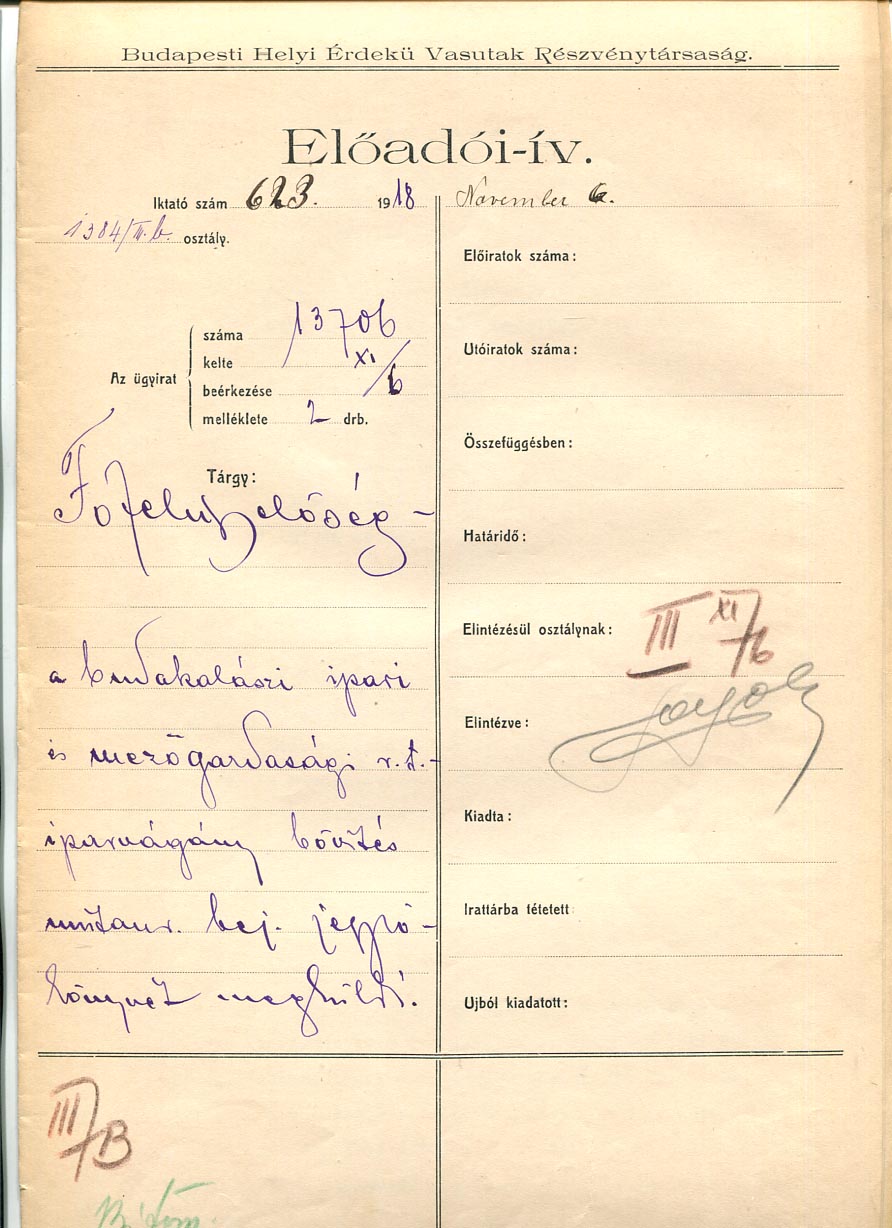 Budapesti Helyi Érdekü Vasutak Részvénytársaság.
Előadói-ív.
Iktató szám 623. 1918 November 6.
1384/III.b. osztály.
Az ügyirat
száma 13706
kelte XI/6
beérkezése
melléklete 2 drb.
Tárgy:
Főfelügyelőség-
a budakalászi ipari
és mezőgazdasági r.t.-
iparvágány bővítés
műtanr. bej. jegyző-
könyvét megküldi.
III/B
Előiratok száma:
Utóiratok száma:
Összefüggésben:
Határidő:
Elintézésül osztálynak: III XI/6
Elintézve:
Kiadta:
Irattárba tétetett
Ujból kiadatott: